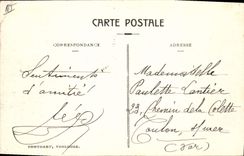 CARTE POSTALE
CORRESPONDANCE
ADRESSE
Sentiments
d'amitié
Mademoiselle
Paulette Lantier
23, Chemin de la Colette
Toulon s/mer
(Var)
TOULOUSE